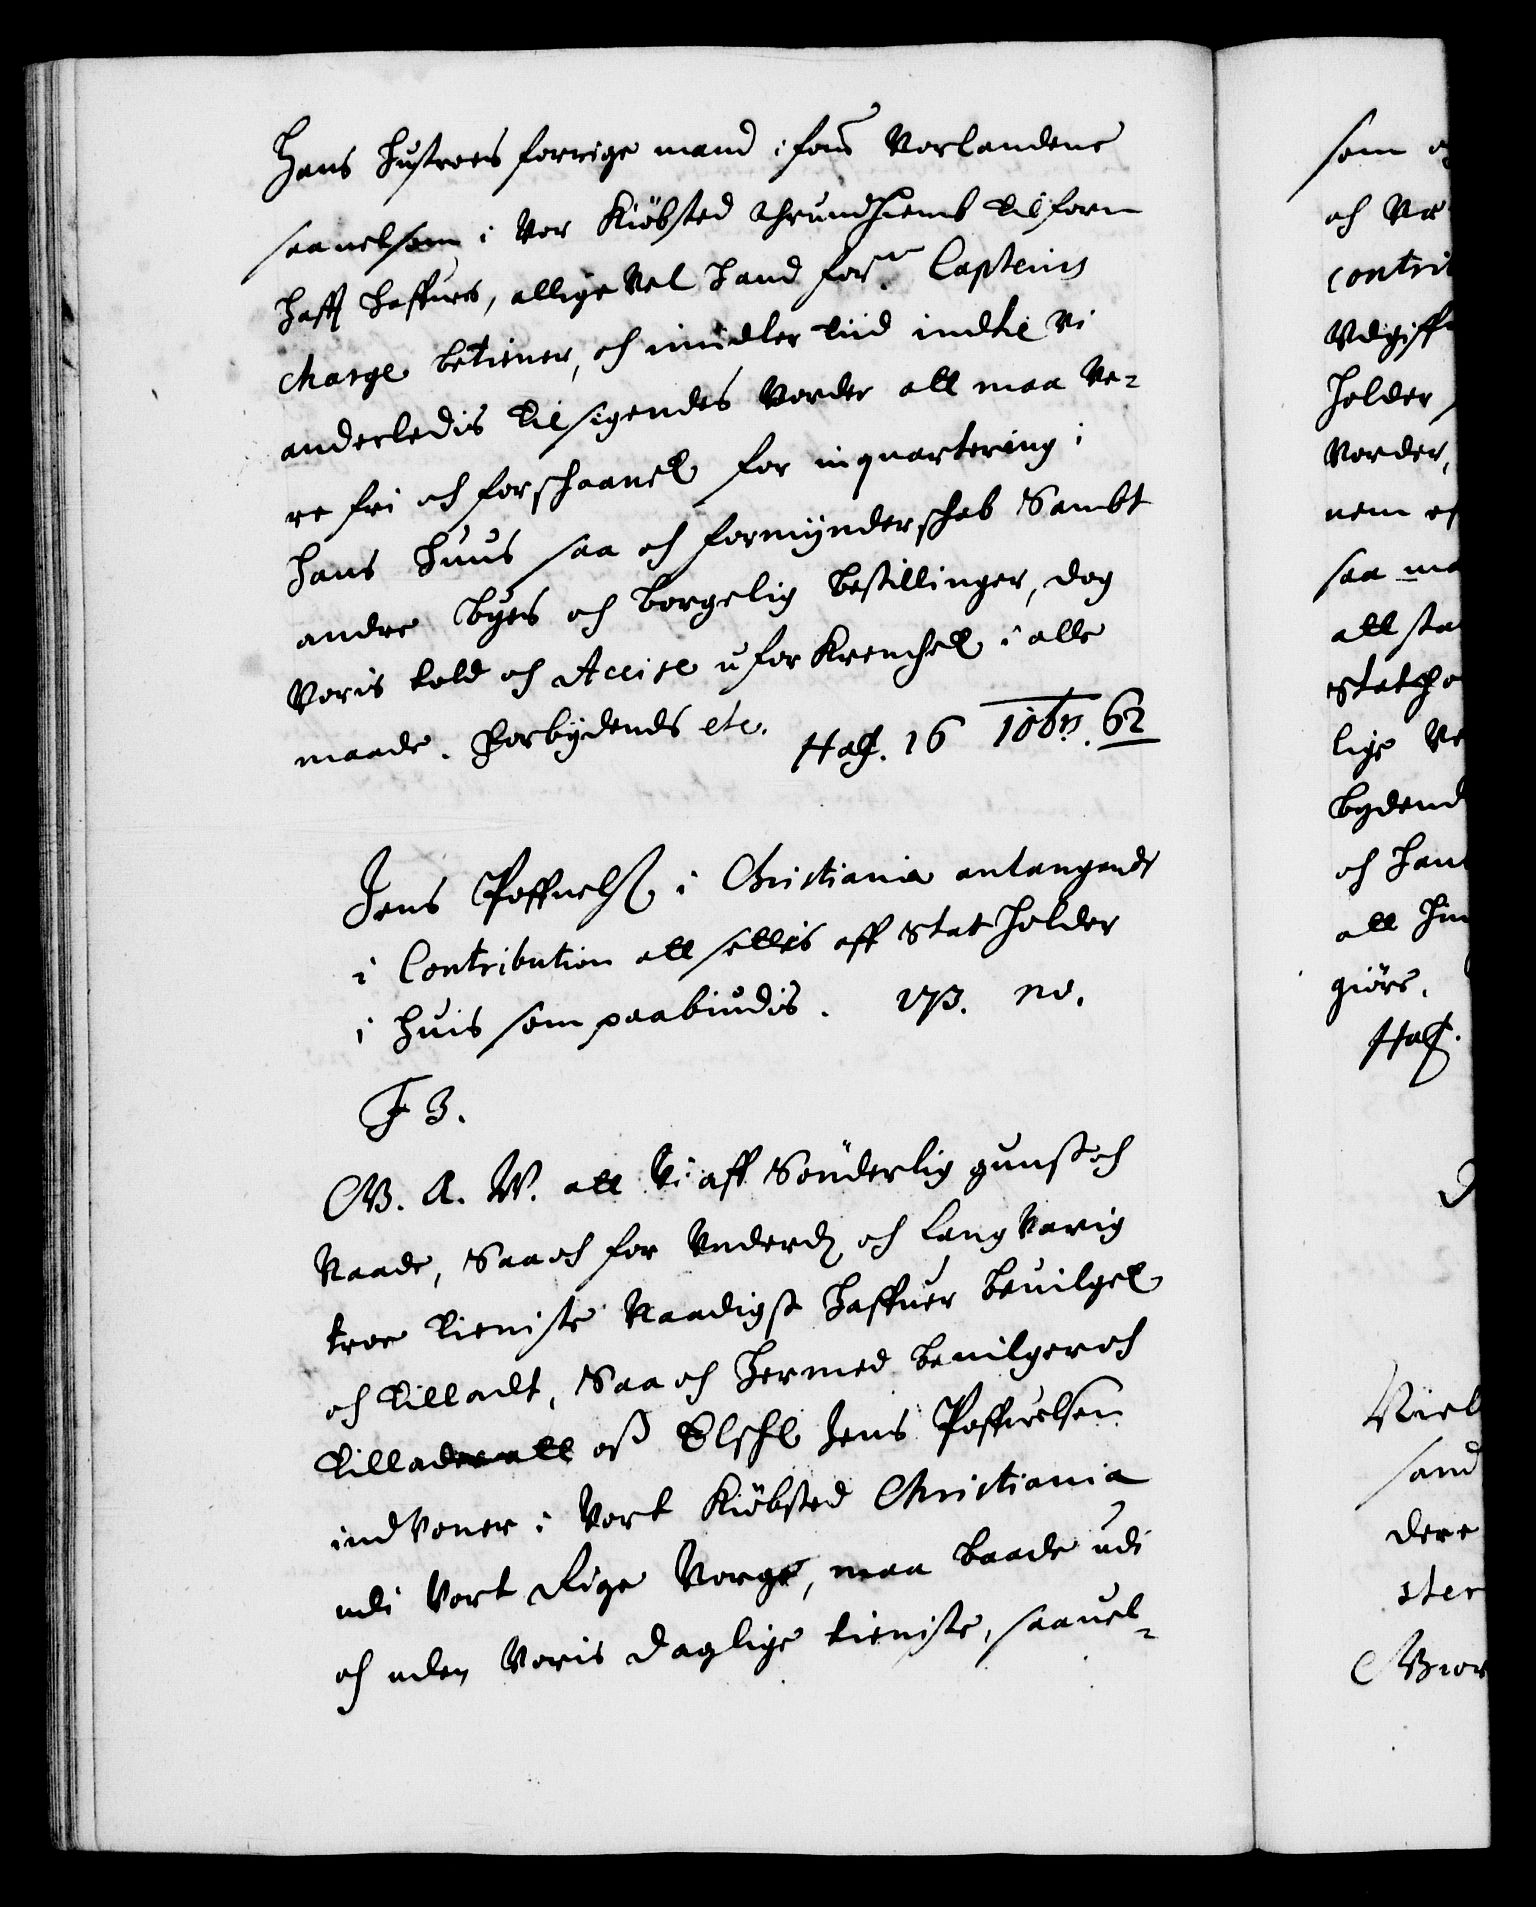 Hans Hustroes forrige mand i fous Vorlandene
saauelsom i Vor Kiöbsted Thrundhiemb tilforn
haff haffurs, allige Vel hand for.ne Capteins
charge betiener, och imidler tiid indtil Vi
anderledis tilsigendes Vorder att maa Ve-
re fri och forschaanet for inquartering i
hans huus saa och formÿnderschab Sambt
andre byes och borgelig bestillinger, dog
Voris told och Accise uforkrenchet i alle
maade. Forbÿdends etc. Haff. 16 10br. 62
Jens Poffuels. i Christiania anlangende
i Contribution att settis aff Statholder
i huis som paabiudis. NB.
F 3.
G. A. V. att Vi aff Sönderlig gunst och
Naade, Saa och for Vnderd. och langvarig
troe tieniste Naadigst haffuer beuilget
och tilladt, Saa och hermed beuilger och
tillader att oss Elschl. Jens Poffuelsen
indvoner i Vort Kiöbsted Christiania
udi Vort Rige Norge, maa baade udi
och uden Voris daglige tieniste, saauel-
som
och
contri
Vdgiff
holder
Vorder,
nem
saa ma
att sta
Statho
lige
bydend
och han
att
giörs.
Haff.
sand
dere
ster